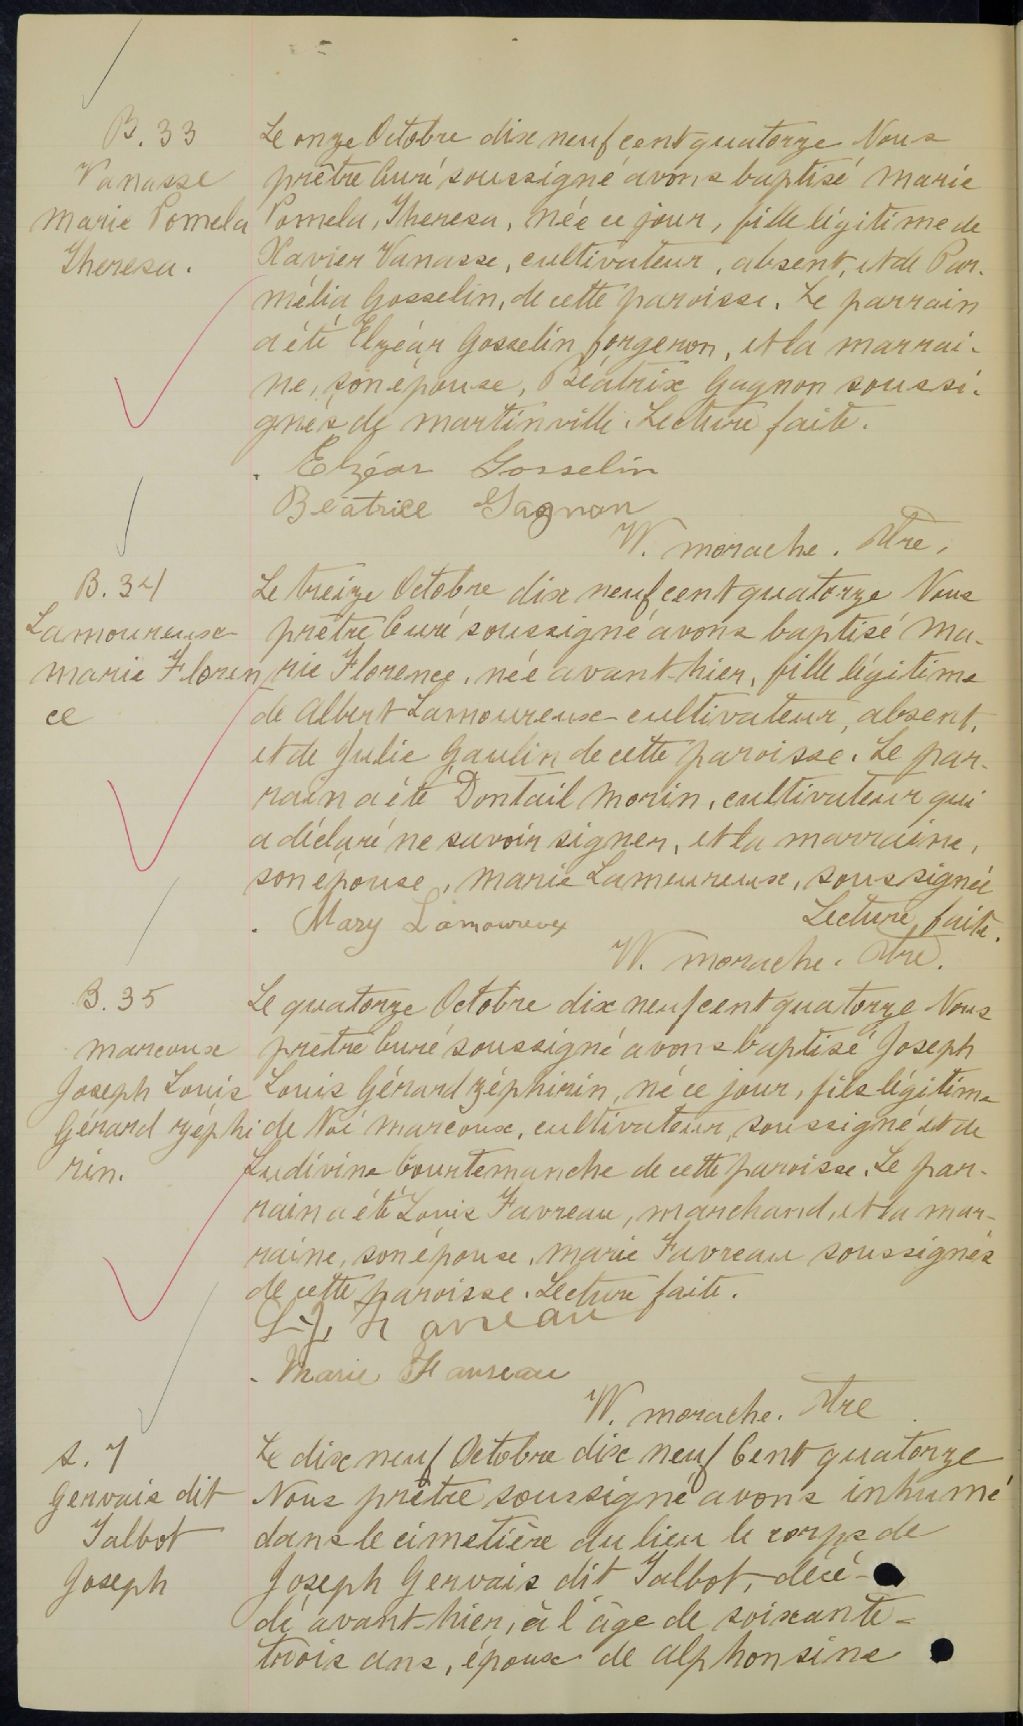 B. 33
Vanasse
Marie Pomela
Theresa.
Le onze Octobre dix neuf cent quatorze Nous
prêtre Curé soussigné avons baptisé Marie
Pomela, Theresa, née ce jour, fille légitime de
Xavier Vanasse, cultivateur, absent, et de Par-
mélia Gosselin, de cette paroisse. Le parrain
a été Elzéar Gosselin forgeron, et la marrai-
ne, son épouse, Béatrix Gagnon soussi-
gnés de Martinville. Lecture faite.
Elzéar Gosselin
Béatrice Gagnon
W. Morache. Ptre.
B. 34
Lamoureux
Marie Floren
ce
Le treize Octobre dix neuf cent quatorze Nous
prêtre Curé soussigné avons baptisé Ma-
rie Florence, née avant-hier, fille légitime
de Albert Lamoureux cultivateur, absent,
et de Julie Gaulin de cette paroisse. Le par-
rain a été Dontail Morin, cultivateur qui
a déclaré ne savoir signer, et la marraine,
son épouse, Marie Lameureux, soussignée
Lecture faite.
Mary Lamoureux
W. Morache. Ptre.
B. 35
Marcoux
Joseph Louis
Gérard Zéphi
rin.
Le quatorze Octobre dix neuf cent quatorze Nous
prêtre Curé soussigné avons baptisé Joseph
Louis Gérard Zéphirin, né ce jour, fils légitime
de Noé Marcoux, cultivateur, soussigné et de
Ludivine Courtemanche de cette paroisse. Le par-
rain a été Louis Favreau, marchand, et la mar-
raine, son épouse, Marie Favreau soussignés
de cette paroisse. Lecture faite.
L. J. Favreau
Marie Favreau
W. Morache. Ptre
S. 7
Gervais dit
Talbot
Joseph
Le dix neuf Octobre dix neuf Cent quatorze
Nous prêtre soussigné avons inhumé
dans le cimetière du lieu le corps de
Joseph Gervais dit Talbot, décé-
dé avant-hier, à l'âge de soixante-
trois ans, époux de Alphonsine